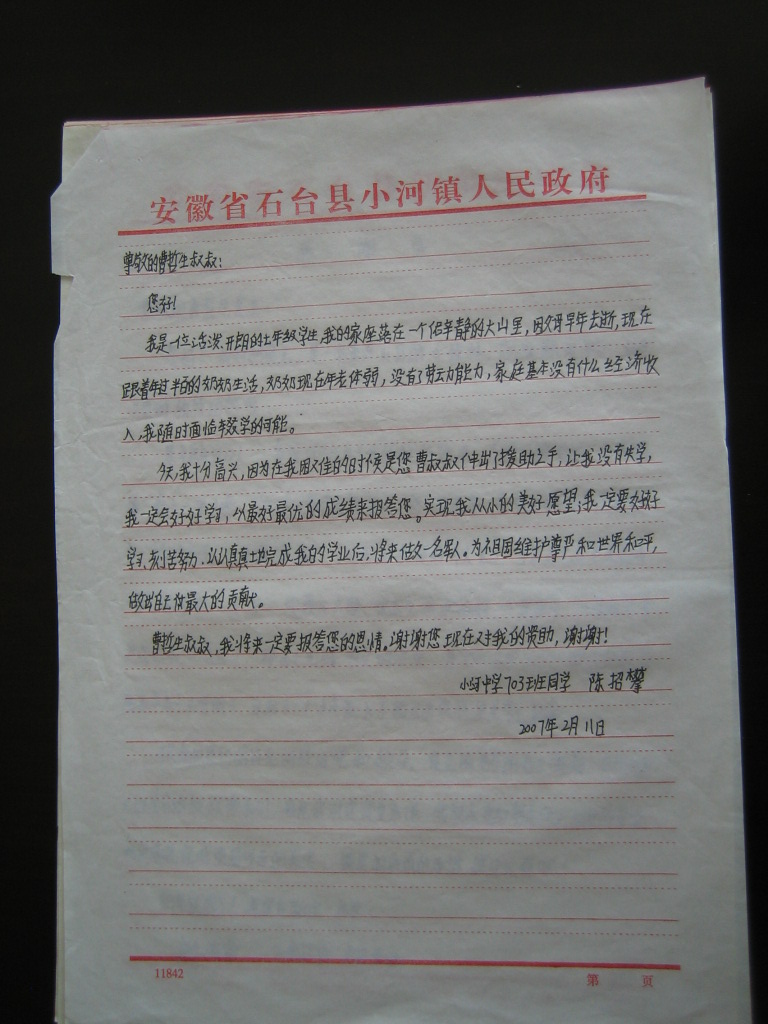 安徽省石台县小河镇人民政府
尊敬的曹哲生叔叔：
您好！
我是一位活泼、开朗的七年级学生，我的家座落在一个僻静的大山里，因父母早年去逝，现在
跟着年过半百的奶奶生活，奶奶现在年老体弱，没有了劳动能力，家庭基本没有什么经济收
入，我随时面临辍学的可能。
今天，我十分高兴，因为在我困难的时候是您曹叔叔伸出了援助之手，让我没有失学，
我一定会好好学习，以最好最优的成绩来报答您。实现我从小的美好愿望；我一定要好好
学习、刻苦努力，认认真真地完成我的学业后，将来做一名军人。为祖国维护尊严和世界和平，
做出自己做最大的贡献。
曹哲生叔叔，我将来一定要报答您的恩情。谢谢您现在对我的资助，谢谢！
小河中学703班同学 陈招攀
2007年2月11日
11842 第 页